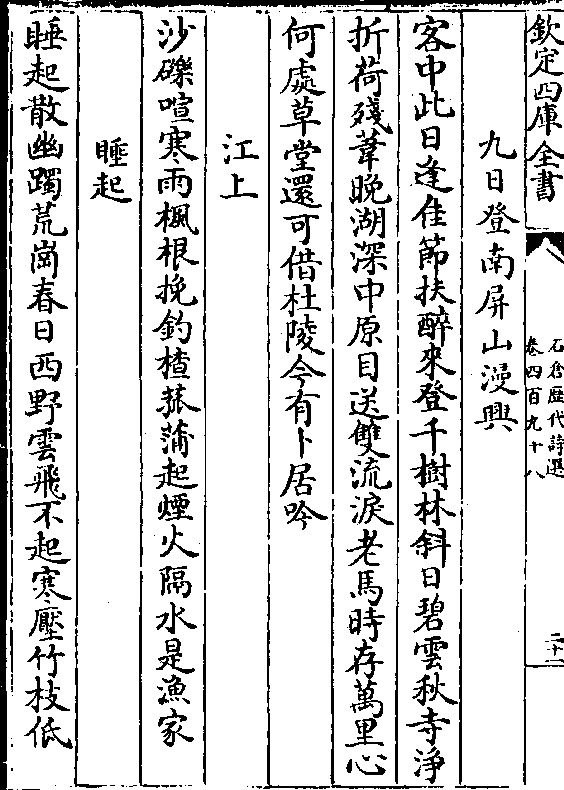 欽定四庫全書
石倉歷代詩選
卷四百九十八
二十一
九日登南屏山漫興
客中此日逢佳節扶醉來登千樹林斜日碧雲秋寺淨
折荷殘葦晚湖深中原目送雙流淚老馬時存萬里心
何處草堂還可借杜陵今有卜居吟
江上
沙磧喧寒雨楓根挽釣楂菰蒲起煙火隔水是漁家
睡起
睡起散幽躅荒崗春日西野雲飛不起寒壓竹枝低